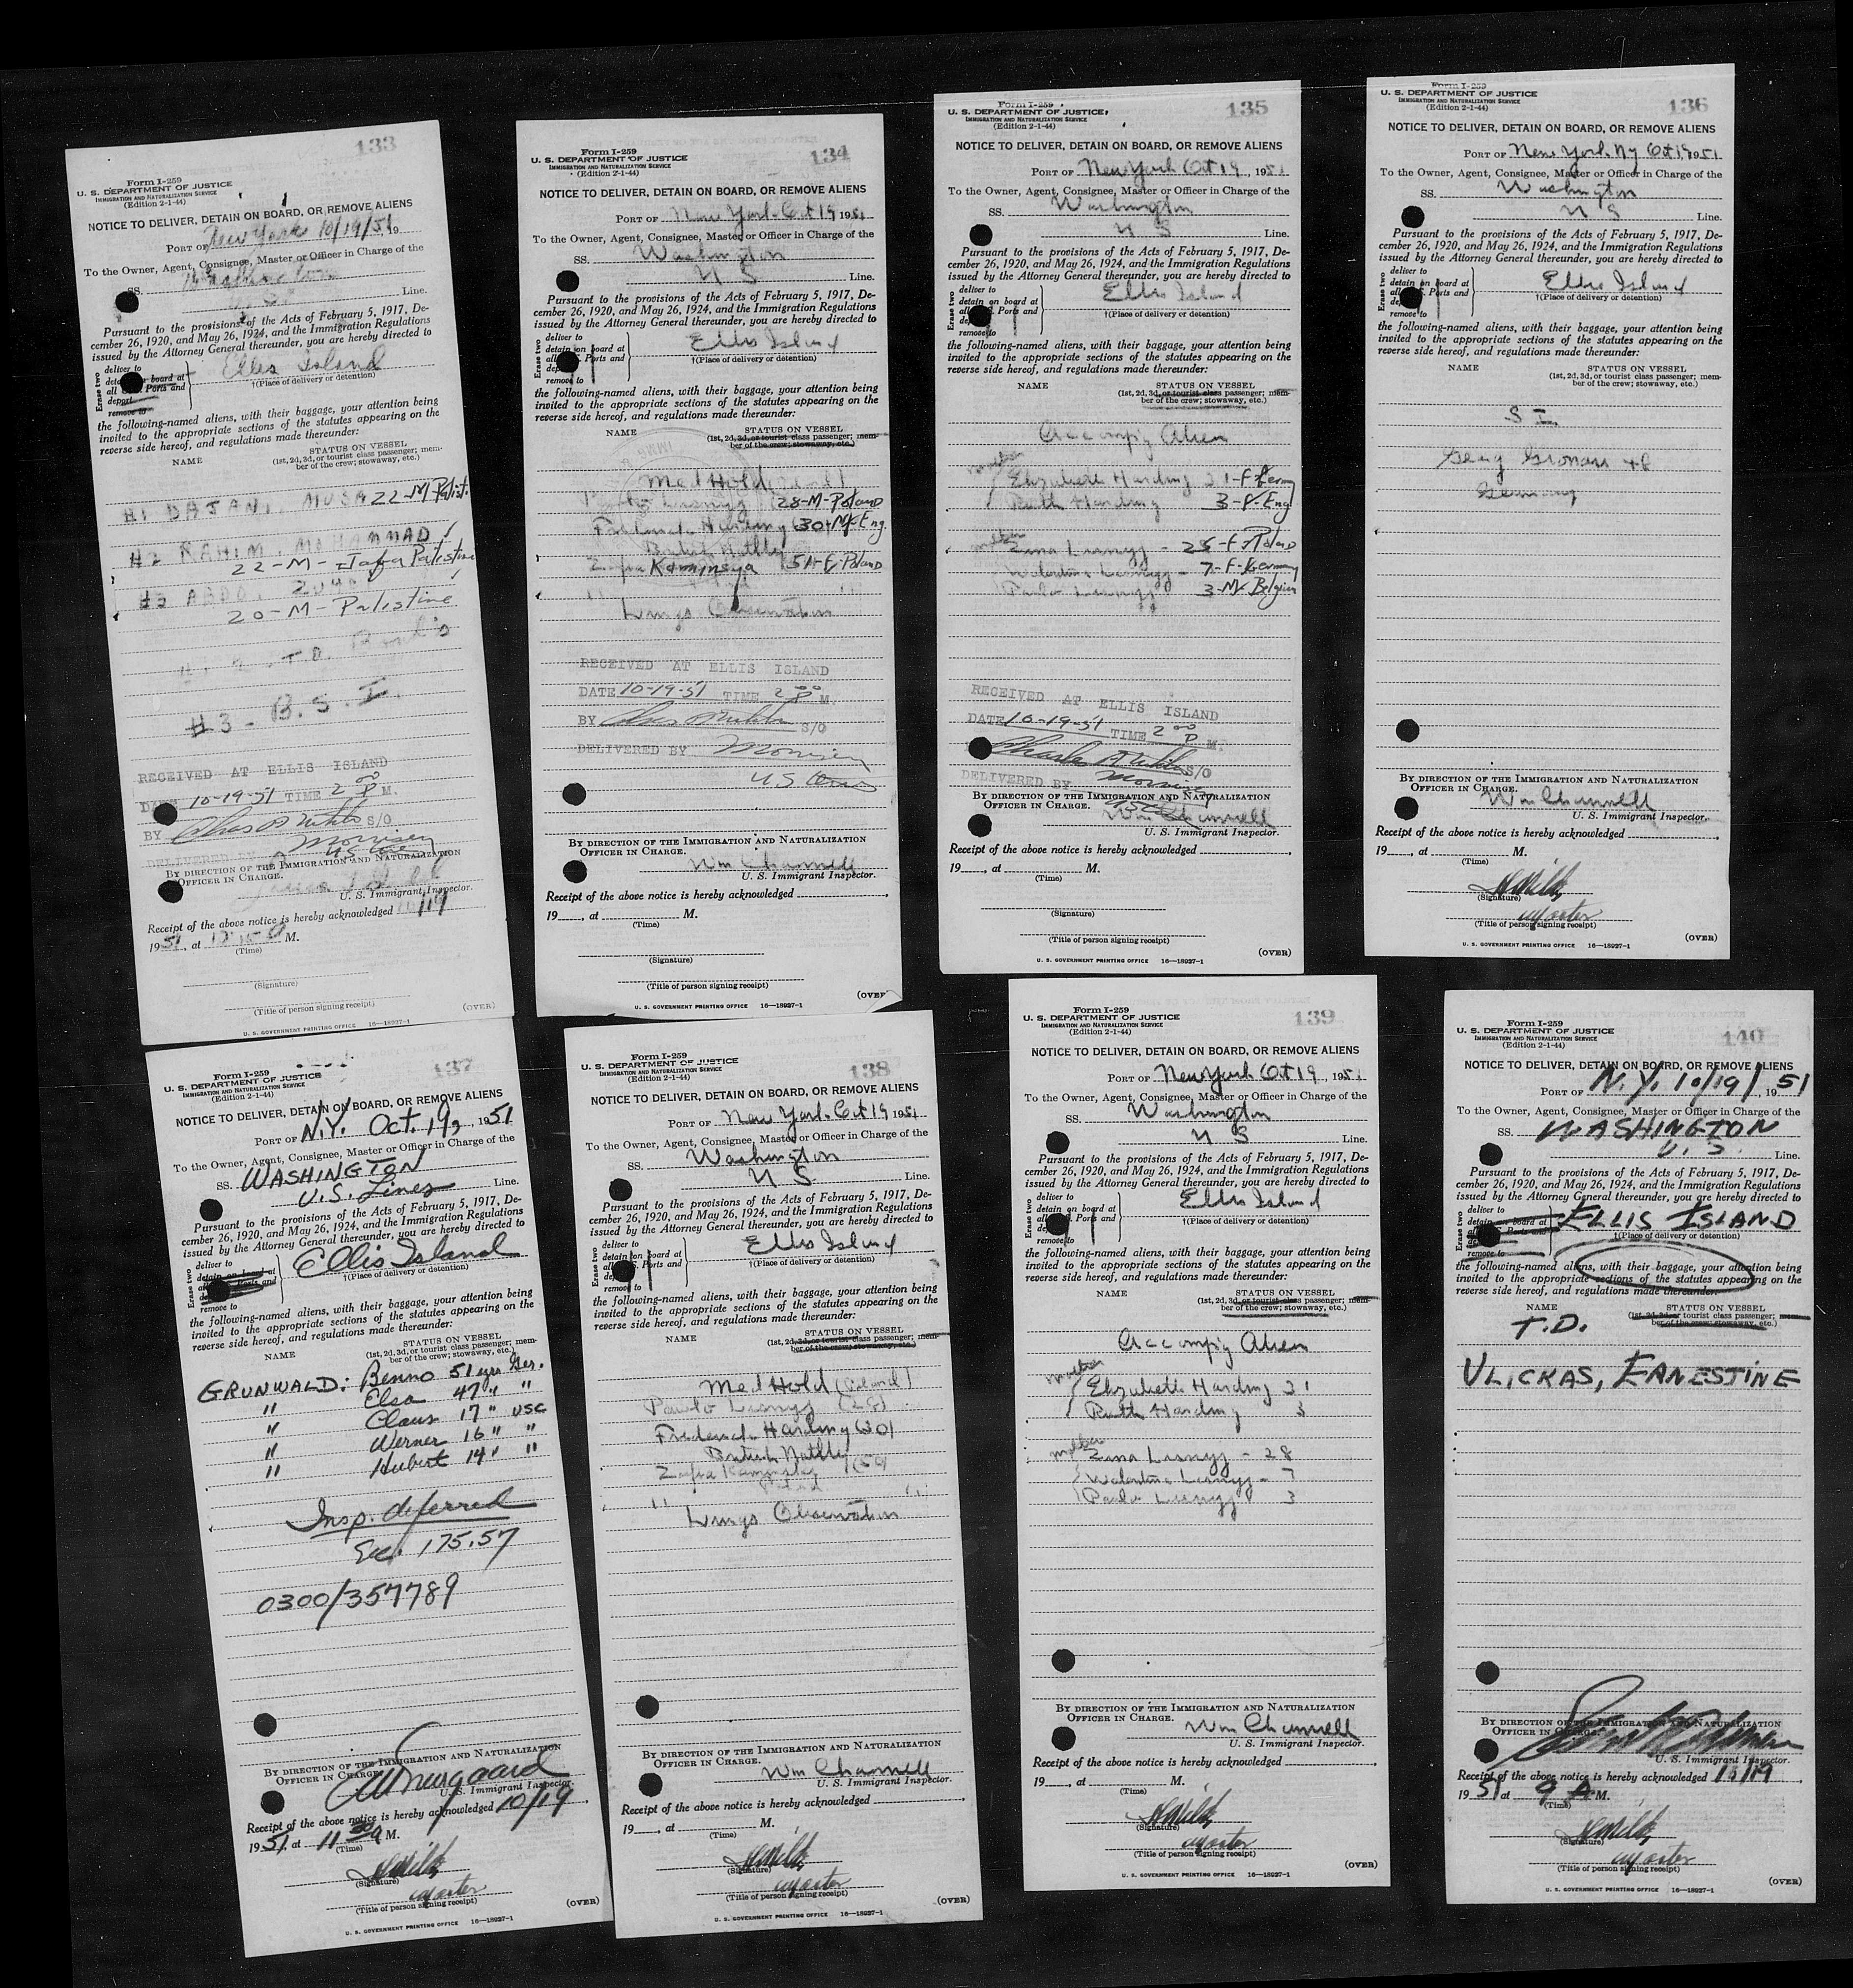 133
Form I-259
U. S. DEPARTMENT OF JUSTICE
IMMIGRATION AND NATURALIZATION SERVICE
(Edition 2-1-44)
NOTICE TO DELIVER, DETAIN ON BOARD, OR REMOVE ALIENS
PORT OF New York 10/19/51, 19
To the Owner, Agent, Consignee, Master or Officer in Charge of the
SS. Washington
Line.
Pursuant to the provisions of the Acts of February 5, 1917, De-
cember 26, 1920, and May 26, 1924, and the Immigration Regulations
issued by the Attorney General thereunder, you are hereby directed to
Erase two
deliver to
board at
all Ports and
deport
remove to
Ellis Island
†(Place of delivery or detention)
the following-named aliens, with their baggage, your attention being
invited to the appropriate sections of the statutes appearing on the
reverse side hereof, and regulations made thereunder:
NAME STATUS ON VESSEL
(1st, 2d, 3d, or tourist class passenger; mem-
ber of the crew; stowaway, etc.)
#1 DAJANI, MUSA 22-M Palist.
#2 RAHIM, MOHAMMAD
22-M-Jafa Palistine
#3 ABDO,
20-M-Palistine
#3-B.S.I.
RECEIVED AT ELLIS ISLAND
DATE 10-19-51 TIME 2 00 P M.
BY S/O
DELIVERED BY
BY DIRECTION OF THE IMMIGRATION AND NATURALIZATION
OFFICER IN CHARGE.
U. S. Immigrant Inspector.
Receipt of the above notice is hereby acknowledged 10/19
1951, at M.
(Time)
(Signature)
(Title of person signing receipt)
(OVER)
U. S. GOVERNMENT PRINTING OFFICE 16—18927-1
134
Form I-259
U. S. DEPARTMENT OF JUSTICE
IMMIGRATION AND NATURALIZATION SERVICE
(Edition 2-1-44)
NOTICE TO DELIVER, DETAIN ON BOARD, OR REMOVE ALIENS
PORT OF New York Oct 19 1951
To the Owner, Agent, Consignee, Master or Officer in Charge of the
SS. Washington
U S Line.
Pursuant to the provisions of the Acts of February 5, 1917, De-
cember 26, 1920, and May 26, 1924, and the Immigration Regulations
issued by the Attorney General thereunder, you are hereby directed to
Erase two
deliver to
detain on board at
all Ports and
remove to
Ellis Island
†(Place of delivery or detention)
the following-named aliens, with their baggage, your attention being
invited to the appropriate sections of the statutes appearing on the
reverse side hereof, and regulations made thereunder:
NAME STATUS ON VESSEL
(1st, 2d, 3d, or tourist class passenger; mem-
ber of the crew; stowaway, etc.)
Med Hold
(28-M-Poland
Frederick Harding (30) M-Eng.
British
Kaminsya 51-F-Poland
Lungs Observation
RECEIVED AT ELLIS ISLAND
DATE 10-19-51 TIME 2 00 P M.
BY S/O
DELIVERED BY
BY DIRECTION OF THE IMMIGRATION AND NATURALIZATION
OFFICER IN CHARGE.
Wm Channell
U. S. Immigrant Inspector.
Receipt of the above notice is hereby acknowledged
19, at M.
(Time)
(Signature)
(Title of person signing receipt)
(OVER
U. S. GOVERNMENT PRINTING OFFICE 16—18927-1
135
Form I-259
U. S. DEPARTMENT OF JUSTICE
IMMIGRATION AND NATURALIZATION SERVICE
(Edition 2-1-44)
NOTICE TO DELIVER, DETAIN ON BOARD, OR REMOVE ALIENS
PORT OF New York Oct 19, 1951
To the Owner, Agent, Consignee, Master or Officer in Charge of the
SS. Washington
U S Line.
Pursuant to the provisions of the Acts of February 5, 1917, De-
cember 26, 1920, and May 26, 1924, and the Immigration Regulations
issued by the Attorney General thereunder, you are hereby directed to
Erase two
deliver to
detain on board at
all Ports and
remove to
Ellis Island
†(Place of delivery or detention)
the following-named aliens, with their baggage, your attention being
invited to the appropriate sections of the statutes appearing on the
reverse side hereof, and regulations made thereunder:
NAME STATUS ON VESSEL
(1st, 2d, 3d, or tourist class passenger; mem-
ber of the crew; stowaway, etc.)
Accomp'g Alien
mother
Elizabeth Harding 21-F
Ruth Harding 3-F-Eng
mother
Zina Lisnyj - 28-F-Poland
7-F-Germany
3-M-Belgium
RECEIVED AT ELLIS ISLAND
DATE 10-19-51 TIME 2 00 P M.
S/O
DELIVERED BY
BY DIRECTION OF THE IMMIGRATION AND NATURALIZATION
OFFICER IN CHARGE.
Wm Channell
U. S. Immigrant Inspector.
Receipt of the above notice is hereby acknowledged
19, at M.
(Time)
(Signature)
(Title of person signing receipt)
(OVER)
U. S. GOVERNMENT PRINTING OFFICE 16—18927-1
136
Form I-259
U. S. DEPARTMENT OF JUSTICE
IMMIGRATION AND NATURALIZATION SERVICE
(Edition 2-1-44)
NOTICE TO DELIVER, DETAIN ON BOARD, OR REMOVE ALIENS
PORT OF New York Ny Oct 19 1951
To the Owner, Agent, Consignee, Master or Officer in Charge of the
SS. Washington
U S Line.
Pursuant to the provisions of the Acts of February 5, 1917, De-
cember 26, 1920, and May 26, 1924, and the Immigration Regulations
issued by the Attorney General thereunder, you are hereby directed to
Erase two
deliver to
detain on board at
all Ports and
remove to
Ellis Island
†(Place of delivery or detention)
the following-named aliens, with their baggage, your attention being
invited to the appropriate sections of the statutes appearing on the
reverse side hereof, and regulations made thereunder:
NAME STATUS ON VESSEL
(1st, 2d, 3d, or tourist class passenger; mem-
ber of the crew; stowaway, etc.)
S I
Germany
BY DIRECTION OF THE IMMIGRATION AND NATURALIZATION
OFFICER IN CHARGE.
Wm Channell
U. S. Immigrant Inspector.
Receipt of the above notice is hereby acknowledged
19, at M.
(Time)
(Signature)
(Title of person signing receipt)
(OVER)
U. S. GOVERNMENT PRINTING OFFICE 16—18927-1
137
Form I-259
U. S. DEPARTMENT OF JUSTICE
IMMIGRATION AND NATURALIZATION SERVICE
(Edition 2-1-44)
NOTICE TO DELIVER, DETAIN ON BOARD, OR REMOVE ALIENS
PORT OF N.Y. Oct. 19, 1951
To the Owner, Agent, Consignee, Master or Officer in Charge of the
SS. WASHINGTON
U.S. Lines Line.
Pursuant to the provisions of the Acts of February 5, 1917, De-
cember 26, 1920, and May 26, 1924, and the Immigration Regulations
issued by the Attorney General thereunder, you are hereby directed to
Erase two
deliver to
detain on board at
Ports and
remove to
Ellis Island
†(Place of delivery or detention)
the following-named aliens, with their baggage, your attention being
invited to the appropriate sections of the statutes appearing on the
reverse side hereof, and regulations made thereunder:
NAME STATUS ON VESSEL
(1st, 2d, 3d, or tourist class passenger; mem-
ber of the crew; stowaway, etc.)
GRUNWALD: Benno 51 yrs Ger.
" Elsa 47 " "
" Claus 17 " USC
" Werner 16 " "
" Hubert 14 " "
Insp. deferred
Sec. 175.57
0300/357789
BY DIRECTION OF THE IMMIGRATION AND NATURALIZATION
OFFICER IN CHARGE.
U. S. Immigrant Inspector.
Receipt of the above notice is hereby acknowledged 10/19
1951, at 11 30 A M.
(Time)
(Signature)
(Title of person signing receipt)
(OVER)
U. S. GOVERNMENT PRINTING OFFICE 16—18927-1
138
Form I-259
U. S. DEPARTMENT OF JUSTICE
IMMIGRATION AND NATURALIZATION SERVICE
(Edition 2-1-44)
NOTICE TO DELIVER, DETAIN ON BOARD, OR REMOVE ALIENS
PORT OF New York Oct 19 1951
To the Owner, Agent, Consignee, Master or Officer in Charge of the
SS. Washington
U S Line.
Pursuant to the provisions of the Acts of February 5, 1917, De-
cember 26, 1920, and May 26, 1924, and the Immigration Regulations
issued by the Attorney General thereunder, you are hereby directed to
Erase two
deliver to
detain on board at
all Ports and
remove to
Ellis Island
†(Place of delivery or detention)
the following-named aliens, with their baggage, your attention being
invited to the appropriate sections of the statutes appearing on the
reverse side hereof, and regulations made thereunder:
NAME STATUS ON VESSEL
(1st, 2d, 3d, or tourist class passenger; mem-
ber of the crew; stowaway, etc.)
Med Hold
(28)
Frederick Harding (30)
British
Lungs Observation
BY DIRECTION OF THE IMMIGRATION AND NATURALIZATION
OFFICER IN CHARGE.
Wm Channell
U. S. Immigrant Inspector.
Receipt of the above notice is hereby acknowledged
19, at M.
(Time)
(Signature)
(Title of person signing receipt)
(OVER)
U. S. GOVERNMENT PRINTING OFFICE 16—18927-1
139
Form I-259
U. S. DEPARTMENT OF JUSTICE
IMMIGRATION AND NATURALIZATION SERVICE
(Edition 2-1-44)
NOTICE TO DELIVER, DETAIN ON BOARD, OR REMOVE ALIENS
PORT OF New York Oct 19, 1951
To the Owner, Agent, Consignee, Master or Officer in Charge of the
SS. Washington
U S Line.
Pursuant to the provisions of the Acts of February 5, 1917, De-
cember 26, 1920, and May 26, 1924, and the Immigration Regulations
issued by the Attorney General thereunder, you are hereby directed to
Erase two
deliver to
detain on board at
all Ports and
remove to
Ellis Island
†(Place of delivery or detention)
the following-named aliens, with their baggage, your attention being
invited to the appropriate sections of the statutes appearing on the
reverse side hereof, and regulations made thereunder:
NAME STATUS ON VESSEL
(1st, 2d, 3d, or tourist class passenger; mem-
ber of the crew; stowaway, etc.)
Accomp'g Alien
mother
Elizabeth Harding 21
Ruth Harding 3
mother
Zina Lisnyj - 28
7
3
BY DIRECTION OF THE IMMIGRATION AND NATURALIZATION
OFFICER IN CHARGE.
Wm Channell
U. S. Immigrant Inspector.
Receipt of the above notice is hereby acknowledged
19, at M.
(Time)
(Signature)
(Title of person signing receipt)
(OVER)
U. S. GOVERNMENT PRINTING OFFICE 16—18927-1
140
Form I-259
U. S. DEPARTMENT OF JUSTICE
IMMIGRATION AND NATURALIZATION SERVICE
(Edition 2-1-44)
NOTICE TO DELIVER, DETAIN ON BOARD, OR REMOVE ALIENS
PORT OF N.Y. 10/19/, 1951
To the Owner, Agent, Consignee, Master or Officer in Charge of the
SS. WASHINGTON
U. S. Line.
Pursuant to the provisions of the Acts of February 5, 1917, De-
cember 26, 1920, and May 26, 1924, and the Immigration Regulations
issued by the Attorney General thereunder, you are hereby directed to
Erase two
deliver to
detain on board at
Ports and
remove to
ELLIS ISLAND
†(Place of delivery or detention)
the following-named aliens, with their baggage, your attention being
invited to the appropriate sections of the statutes appearing on the
reverse side hereof, and regulations made thereunder:
NAME STATUS ON VESSEL
(1st, 2d, 3d, or tourist class passenger; mem-
ber of the crew; stowaway, etc.)
T.D.
VLICKAS, ERNESTINE
BY DIRECTION OF THE IMMIGRATION AND NATURALIZATION
OFFICER IN CHARGE.
U. S. Immigrant Inspector.
Receipt of the above notice is hereby acknowledged 10/19
1951 at 9 A M.
(Time)
(Signature)
(Title of person signing receipt)
(OVER)
U. S. GOVERNMENT PRINTING OFFICE 16—18927-1